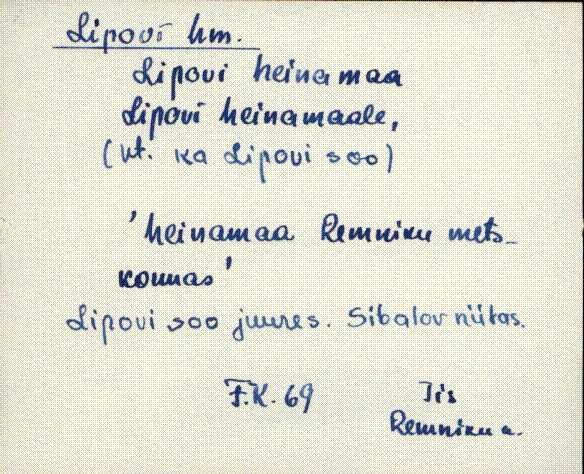 Lipovi hm.
Lipovi heinamaa
Lipovi heinamaale,
(vt. ka Lipovi soo)
'heinamaa Remniku mets-
konnas'
Lipovi soo juures. Sibalov niitas.
F.K. 69
Iis
Remniku k.